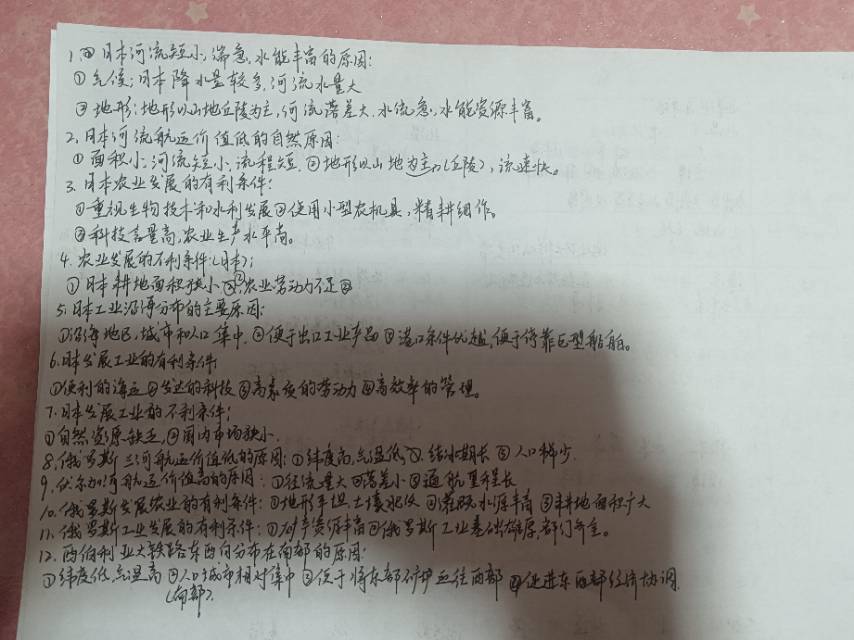 1. 日本河流短小, 湍急, 水能丰富的原因:
① 气候: 日本降水量较多, 河流水量大
② 地形: 地形以山地丘陵为主, 河流落差大. 水流急, 水能资源丰富。
2. 日本河流航运价值低的自然原因:
① 面积小: 河流短小, 流程短. ②地形以山地为主 (丘陵), 流速快。
3. 日本农业发展的有利条件:
①重视生物技术和水利发展②使用小型农机具, 精耕细作。
③科技含量高, 农业生产水平高。
4. 农业发展的不利条件(日本):
① 日本耕地面积狭小②农业劳动力不足
5. 日本工业沿海分布的主要原因:
①沿海地区, 城市和人口集中. ②便于出口工业产品 ③港口条件优越, 便于停靠巨型船舶。
6. 日本发展工业的有利条件:
①便利的海运②发达的科技③高素质的劳动力④高效率的管理。
7. 日本发展工业的不利条件:
①自然资源缺乏, ②国内市场狭小.
8. 俄罗斯三河航运价值低的原因: ①纬度高, 气温低②结冰期长 ③人口稀少.
9. 伏尔加河航运价值高的原因: ①径流量大②落差小③通航里程长
10. 俄罗斯发展农业的有利条件: ①地形平坦, 土壤肥沃 ②灌溉水源丰富 ③耕地面积广大
11. 俄罗斯工业发展的有利条件: ①矿产资源丰富②俄罗斯工业基础雄厚, 部门齐全。
12. 西伯利亚大铁路东西向分布在南部的原因:
①纬度低, 气温高 ②人口城市相对集中 ③便于将东部矿炉运往西部 ④促进东西部经济协调.
(南部).